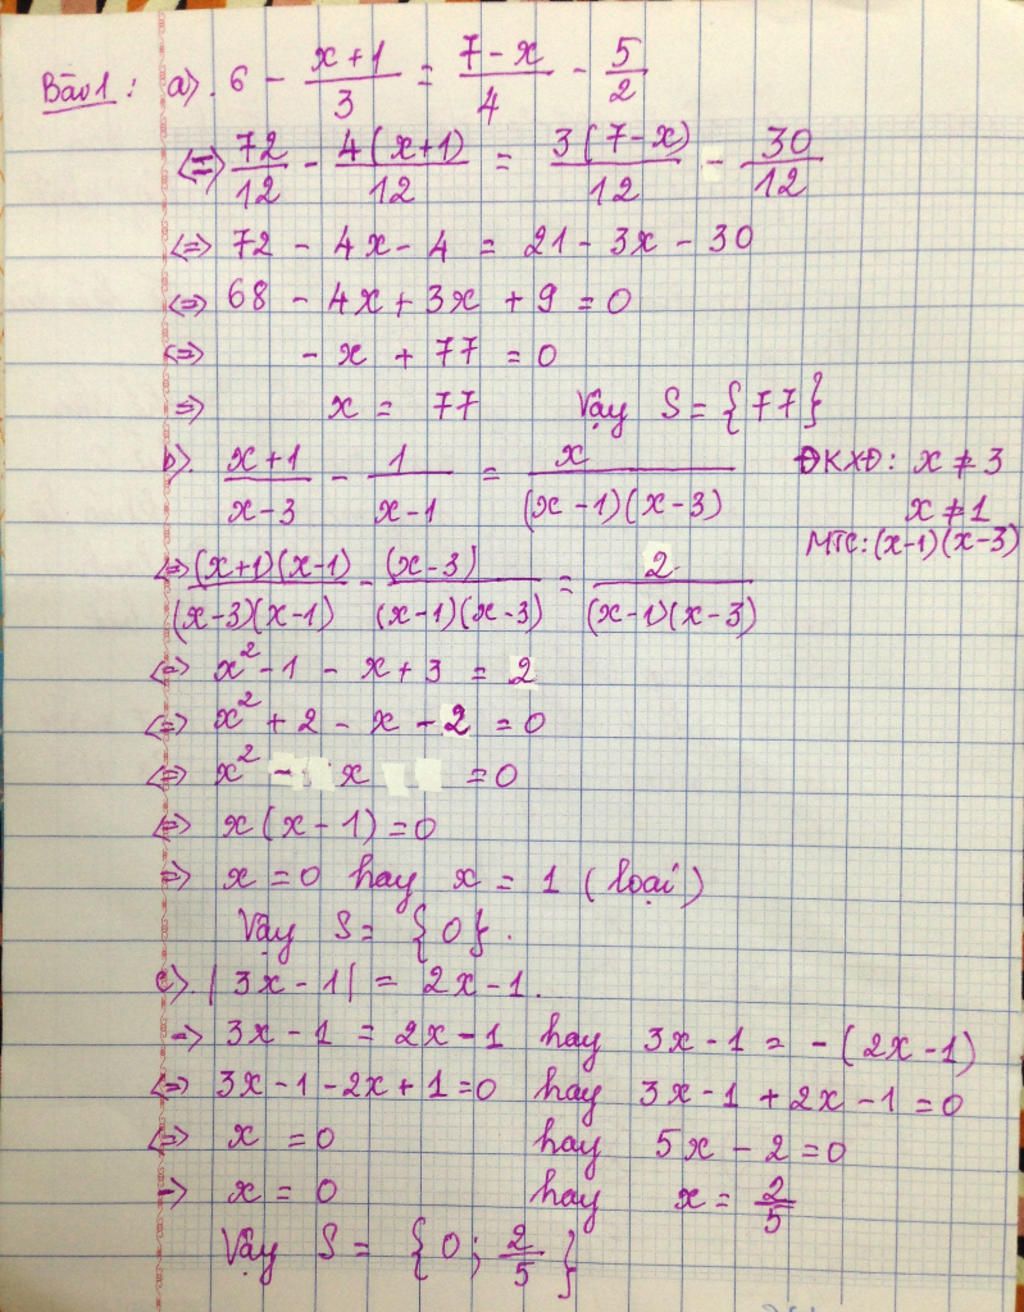 Bài 1 : a). 6 - (x+1)/3 = (7-x)/4 - 5/2
<=> 72/12 - 4(x+1)/12 = 3(7-x)/12 - 30/12
<=> 72 - 4x - 4 = 21 - 3x - 30
<=> 68 - 4x + 3x + 9 = 0
<=> - x + 77 = 0
=> x = 77 Vậy S = {77}
b). (x+1)/(x-3) - 1/(x-1) = x/((x-1)(x-3)) ĐKXĐ: x ≠ 3
x ≠ 1
MTC: (x-1)(x-3)
<=> (x+1)(x-1)/((x-3)(x-1)) - (x-3)/((x-1)(x-3)) = 2/((x-1)(x-3))
<=> x² - 1 - x + 3 = 2
<=> x² + 2 - x - 2 = 0
<=> x² - x = 0
<=> x(x-1) = 0
=> x = 0 hay x = 1 (loại)
Vậy S = {0}.
c). |3x - 1| = 2x - 1.
=> 3x - 1 = 2x - 1 hay 3x - 1 = -(2x-1)
<=> 3x - 1 - 2x + 1 = 0 hay 3x - 1 + 2x - 1 = 0
<=> x = 0 hay 5x - 2 = 0
=> x = 0 hay x = 2/5
Vậy S = {0; 2/5}